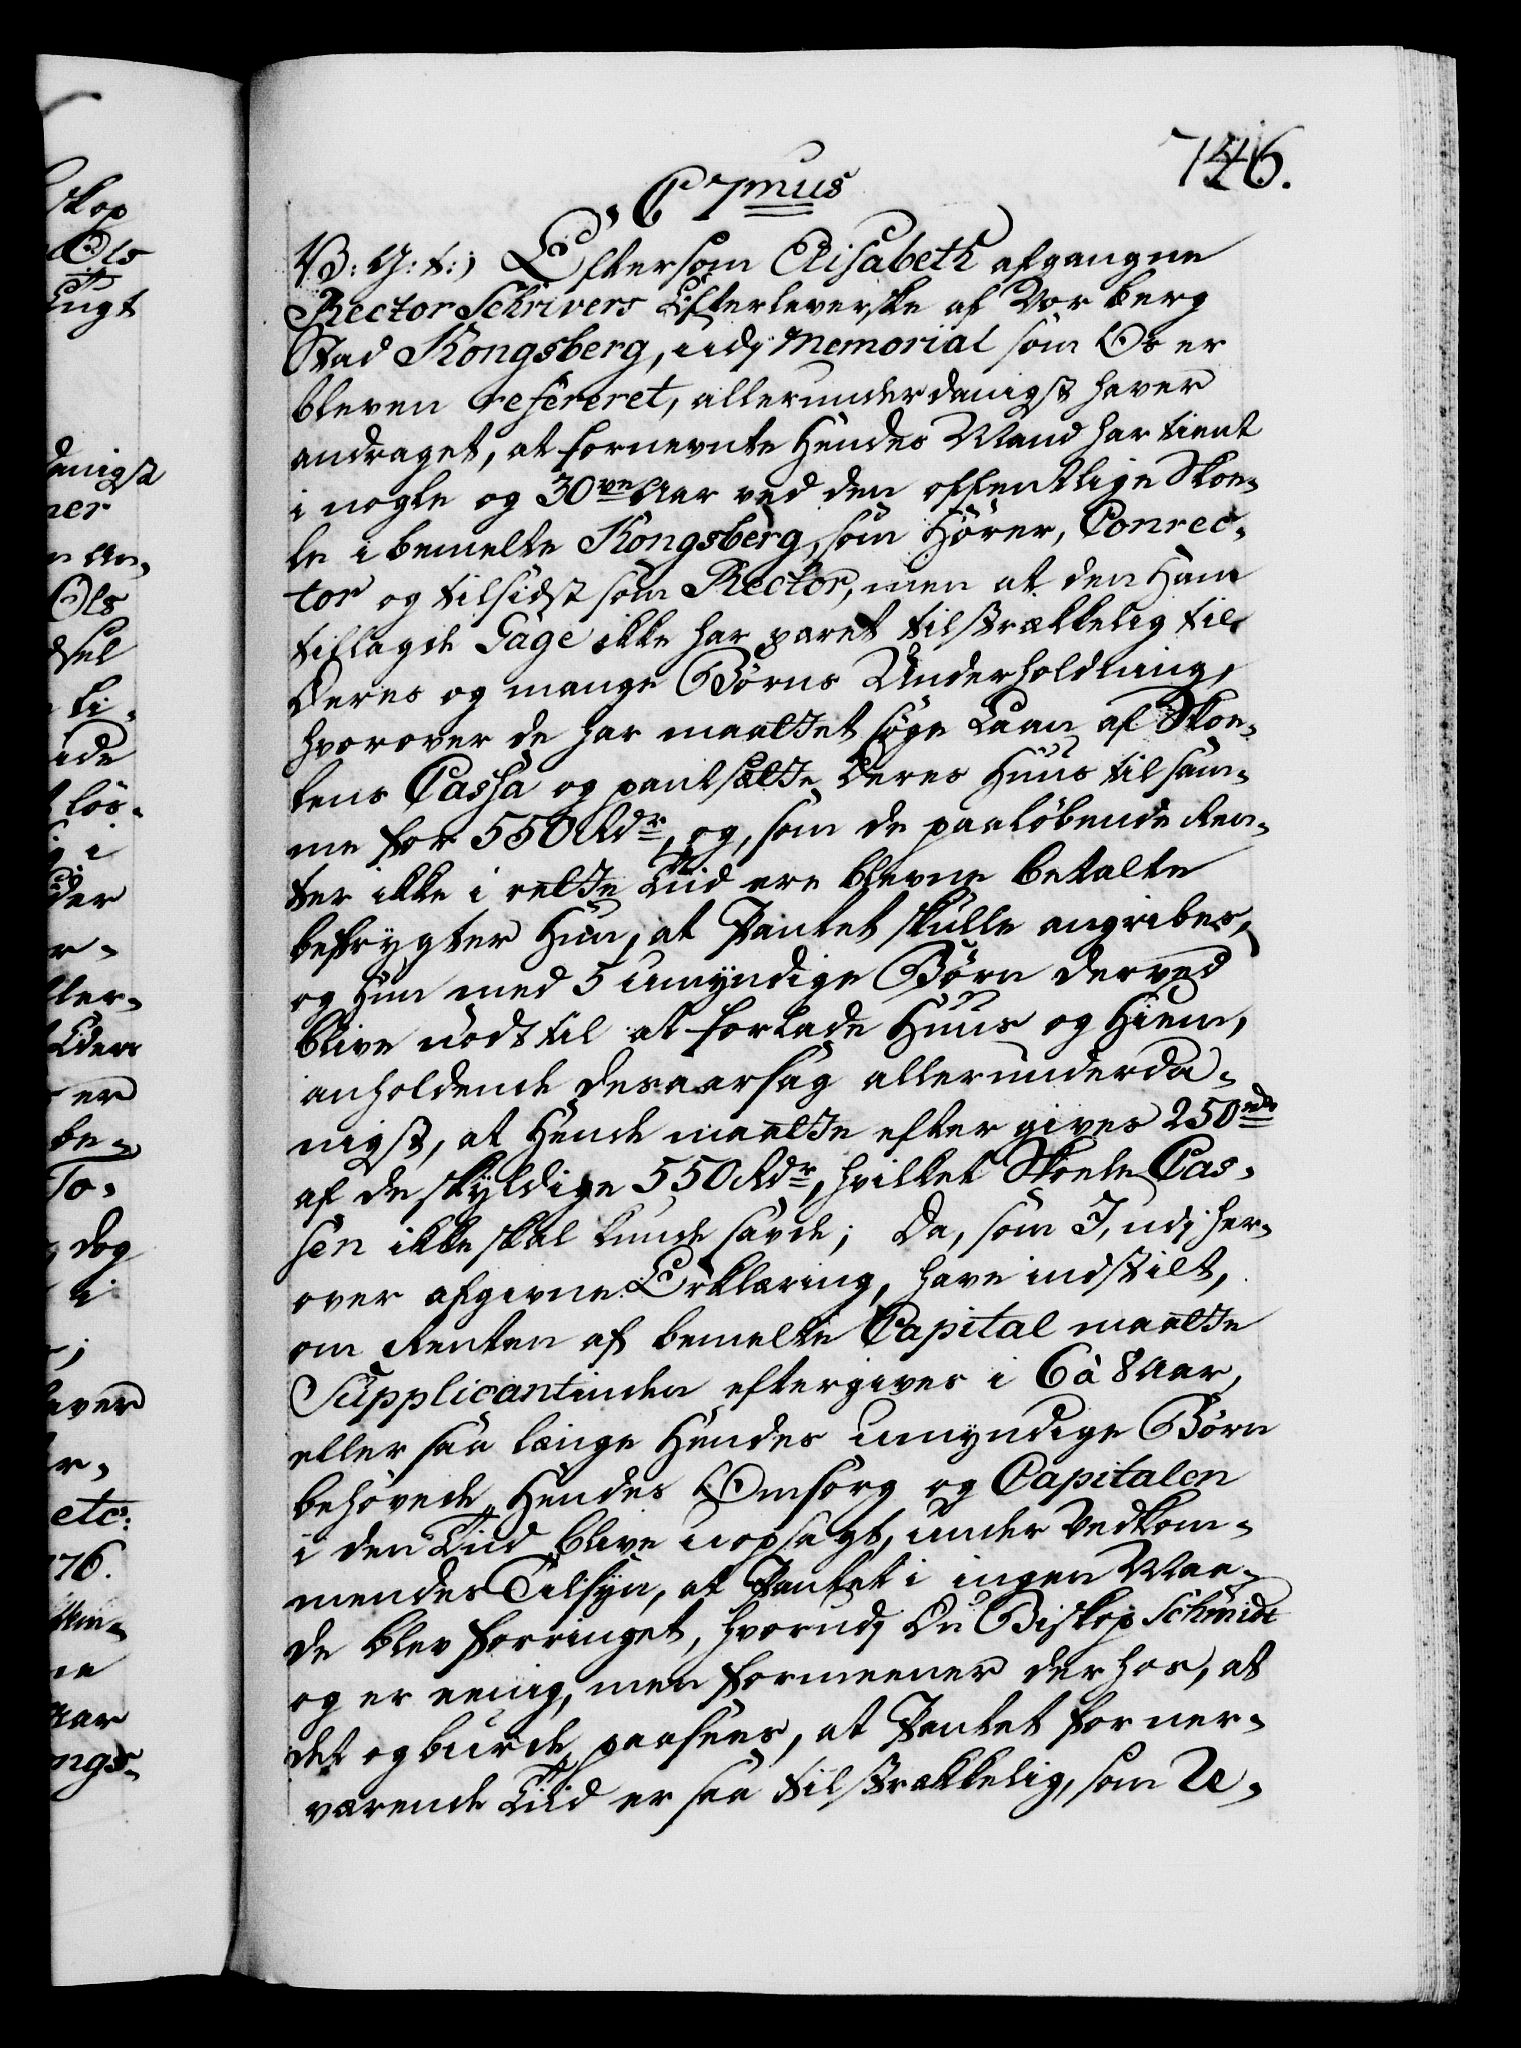 746.
C 7mus
V: G: t:) Eftersom Elisabeth afgangne
Rector Schrivers Efterleverske af Vor berg
Stad Kongsberg, udj Memorial som Os er
bleven refereret, allerunderdanigst haver
andraget, at fornevnte Hendes Mand har tient
i nogle og 30ve Aar ved den offentlige Skoe-
le i bemelte Kongsberg, som Hörer, Conrec-
tor og tilsidst som Rector, men at den Ham
tillagde Gage ikke har været tilstrækkelig til
Deres og mange Börns Underholdning,
hvorover de har maattet söge Laan af Skoe-
lens Cassa og pantsatte Deres Huus til sam-
me for 550 Rdr, og, som de paalöbende Ren-
ter ikke i rette Tiid ere blevne betalte
befrygter Hun, at Pantet skulle angribes,
og Hun med 5 umyndige Börn derved
blive nödt til at forlade Huus og Hiem,
anholdende desaarsag allerunderda-
nigst, at Hende maatte efter gives 250 rdr
af de skyldige 550 Rdr, hvilket Skole Cas-
sen ikke skal kunde savde; Da, som I, udj her-
over afgivne Erklæring, have indstilt,
om Renten af bemelte Capital maatte
Supplicantinden eftergives i 6 à 8 Aar,
eller saa længe Hendes umyndige Börn
behövede Hendes Omsorg og Capitalen
i den Tiid blive uopsagt, under Vedkom-
mendes Tilsyn, at Pantet i ingen Maa-
de blev forringet, hvorudj Du Biskop Schmidt
og er eenig, men formeener derhos, at
det og burde paasees, at Pantet for nær-
værende Tiid er saa tilstrækkelig, som Ve-